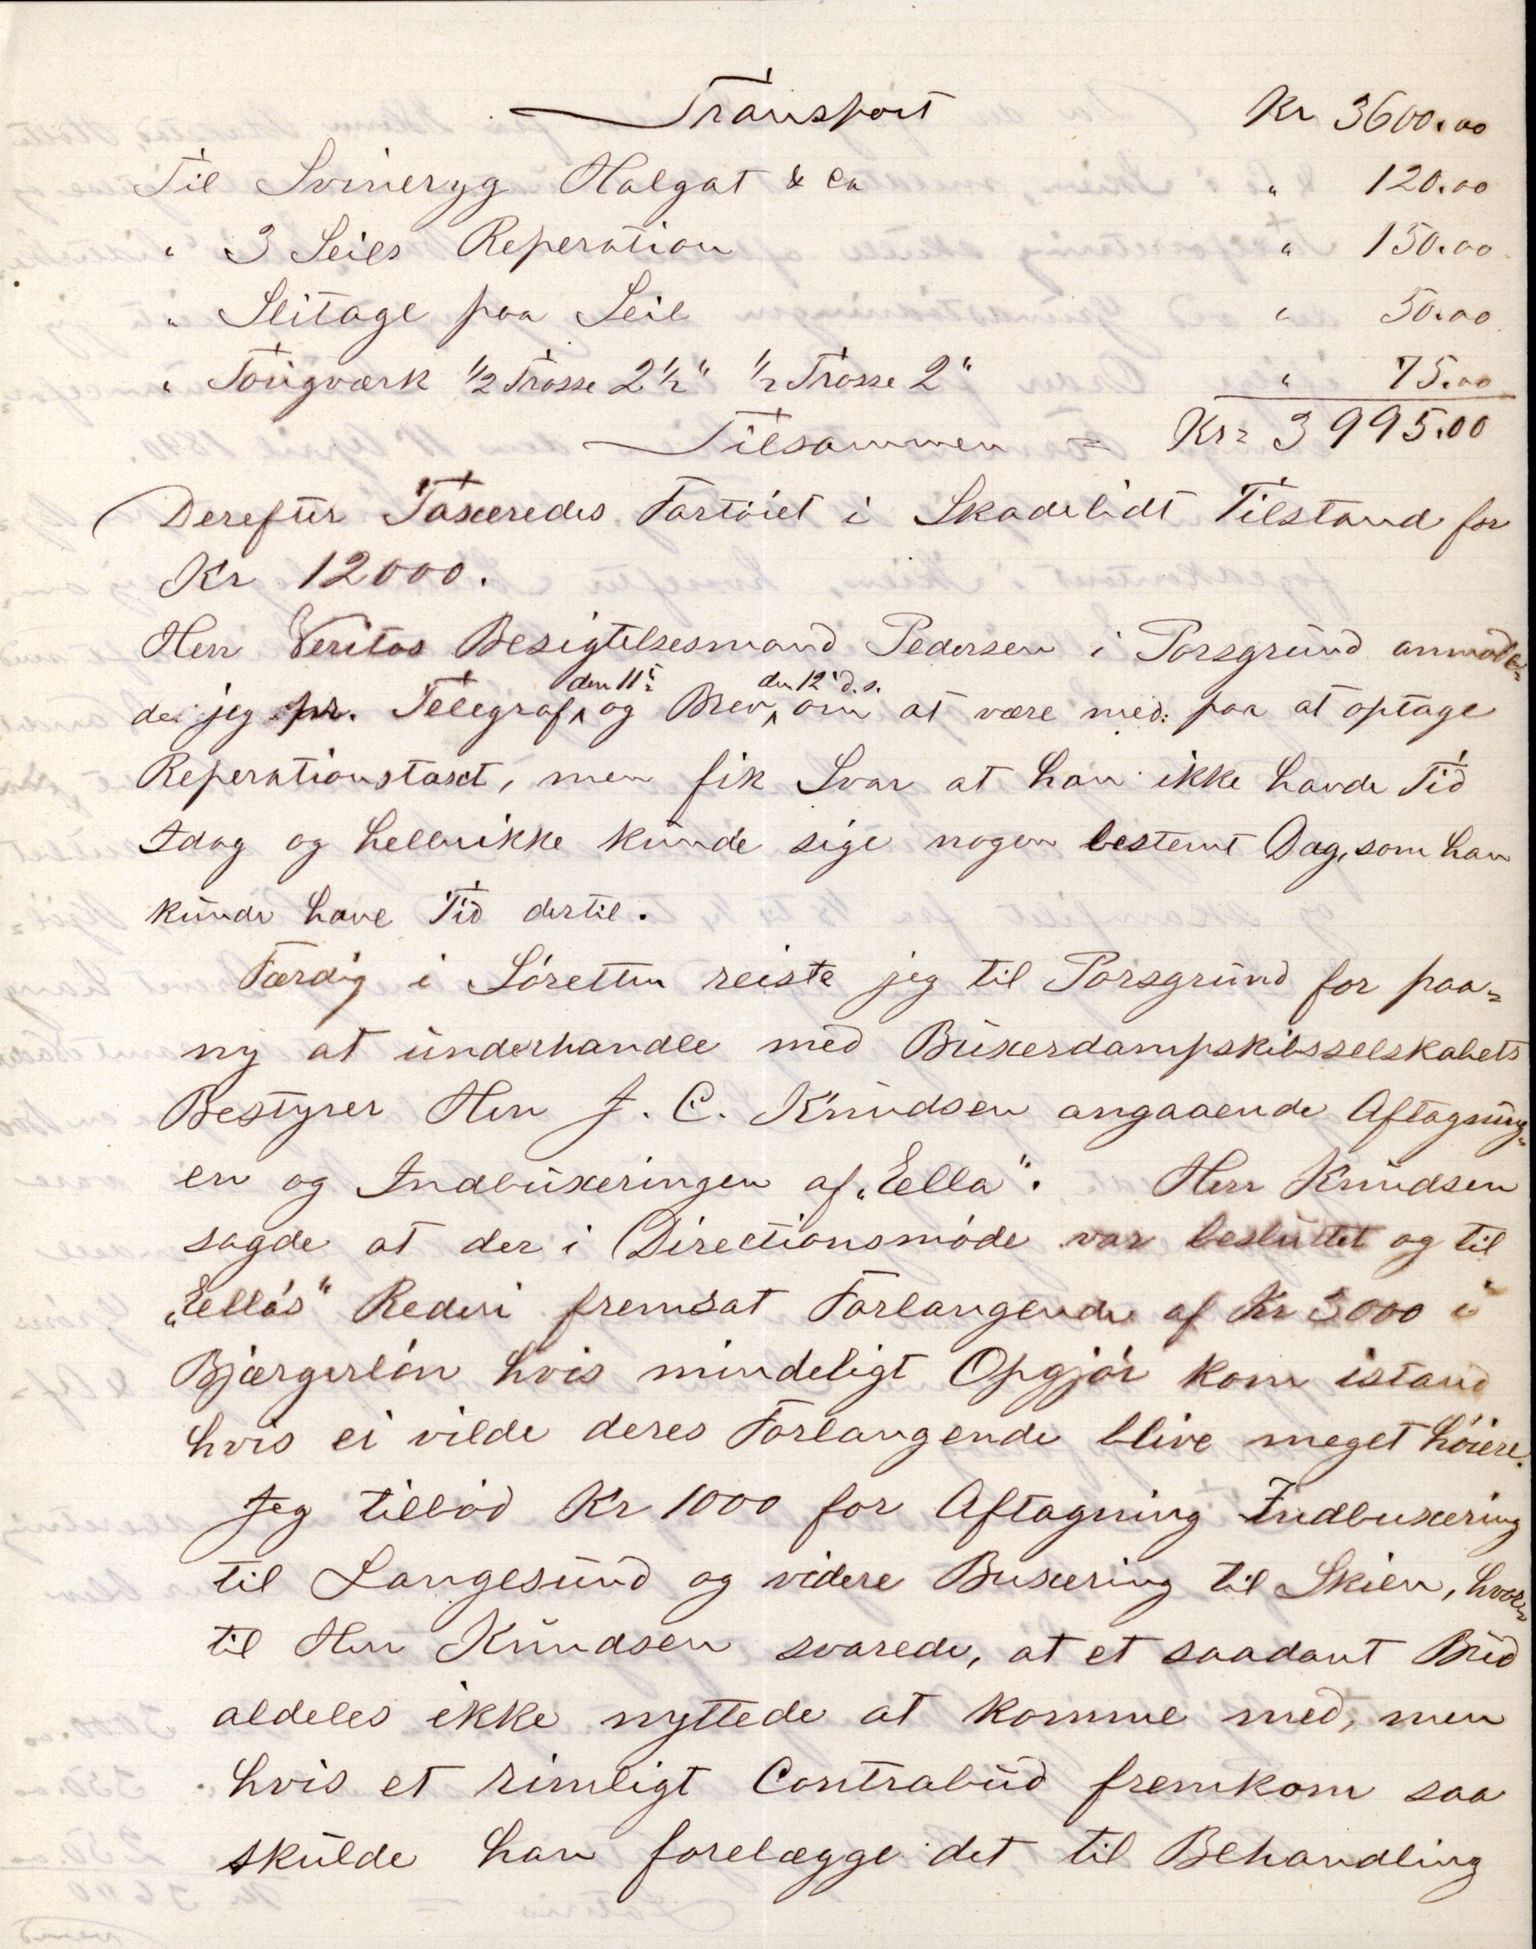 Transport Kr 3600.00
Til Svineryg Halgat & Ca " 120.00
" 3 Seils Reperation " 150.00
" Slitage paa Seil " 50.00
" Tougværk 1/2 Trosse 2 1/2" 1/2 Trosse 2" " 75.00
Tilsammen = Kr= 3995.00
Derefter Taxeredes Fartöiet i Skadelidt Tilstand for
Kr 12000.
Herr Veritas Besigtelsesmand Pedersen i Porsgrund anmode=
de jeg pr. Telegraf den 11te og Brev den 12' d.s. om at være med paa at optage
Reperationstaxt, men fik Svar at han ikke havde Tid
Idag og hellerikke kunde sige nogen bestemt Dag, som han
kunde have Tid dertil.
Færdig i Söretten reiste jeg til Porsgrund for paa=
ny at underhandle med Buxerdampskibsselskabets
Bestyrer Herr J. C. Knudsen angaaende Aftagning=
en og Indbuxeringen af „Ella". Herr Knudsen
sagde at der i Directionsmöde var besluttet og til
„Ella's" Rederi fremsat Forlangende af Kr 3000 i
Bjærgerlön hvis mindeligt Opgjör kom istand
hvis ei vilde deres Forlangende blive meget höiere.
Jeg tilböd Kr 1000 for Aftagning Indbuxering
til Langesund og videre Buxering til Skien, hvor=
til Herr Knudsen svarede, at et saadant Bud
aldeles ikke nyttede at komme med, men
hvis et rimligt Contrabud fremkom saa
skulde han forelægge det til Behandling